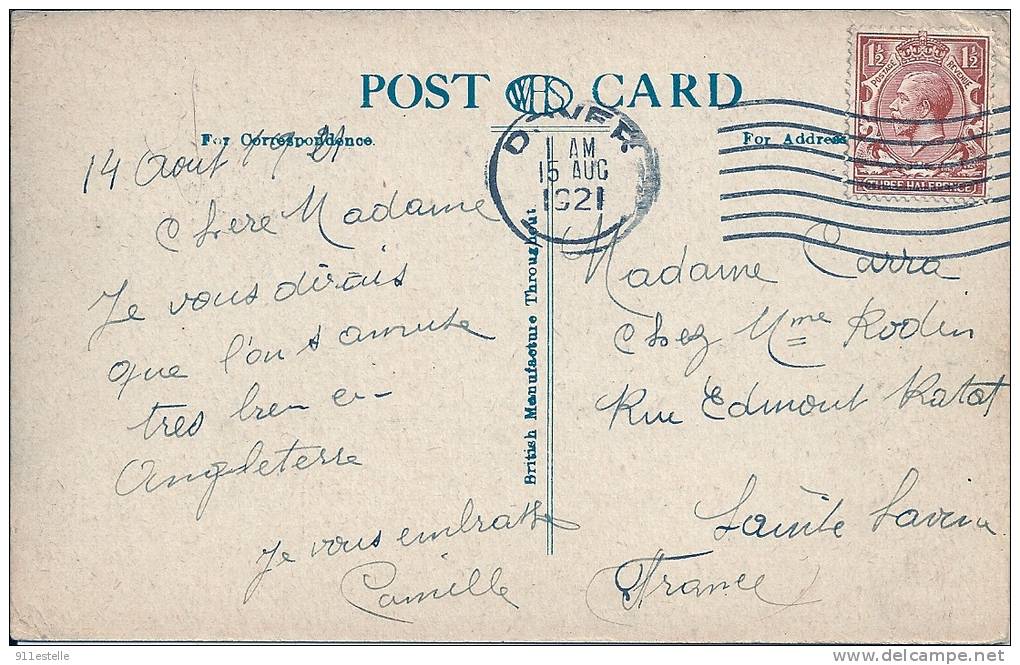 POST WHS CARD
For Correspondence.
For Address
1½ 1½
POSTAGE REVENUE
THREE HALFPENCE
DOVER
AM
15 AUG
1921
14 Aout 1921
Chere Madame
Je vous dirais
que l'on s amuse
tres bien en
Angleterre
Je vous embrasse
Camille
British Manufacture Throughout
Madame Carra
Chez Mme Rodin
Rue Edmont
Sainte Savine
France
911estelle
http://www.delcampe.net